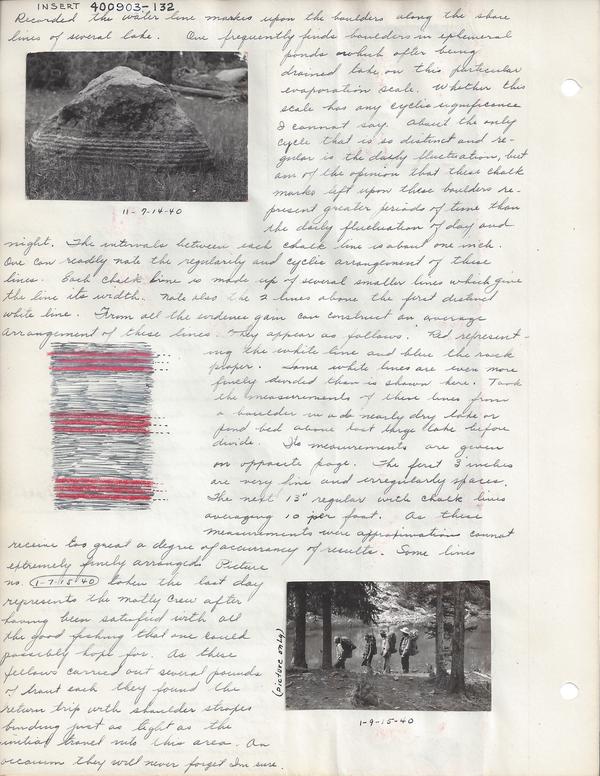 INSERT 400903-132
Recorded the water line markes upon the boulders along the shore
lines of several lake. One frequently finds boulders in ephemeral
ponds which after being
drained take on this particular
evaporation scale. Whether this
scale has any cyclic significance
I cannot say. About the only
cycle that is so distinct and re-
gular is the daily fluctuation, but
am of the opinion that these chalk
marks left upon these boulders re-
present greater periods of time than
the daily fluctuation of day and
11-9-14-40
night. The intervals between each chalk line is about one inch.
One can readily note the regularity and cyclic arrangement of these
lines. Each chalk line is made up of several smaller lines which give
the line its width. Note also the 2 lines above the first distinct
white line. From all the evidence gain can construct an average
arrangement of these lines. They appear as follows. Red represent-
ing the white line and blue the rock
proper. Some white lines are even more
finely divided than is shown here. Took
the measurements of these lines from
a boulder in a nearly dry lake or
pond bed above last large lake before
divide. Its measurements are given
on opposite page. The first 3 inches
are very fine and irregularly spaces.
The next 13" regular with chalk lines
averaging 10 per foot. As these
measurements were approximation cannot
receive too great a degree of accurrancy of results. Some lines
extremely finely arranged. Picture
no. 1-7-15-40 taken the last day
represents the motly crew after
having been satisfied with all
the good fishing that one could
possibly hope for. As these
fellows carried out several pounds
of trout each they found the
return trip with shoulder straps
binding just as tight as the
initial travel into this area. An
occasion they will never forget Im sure.
(picture only)
1-9-15-40